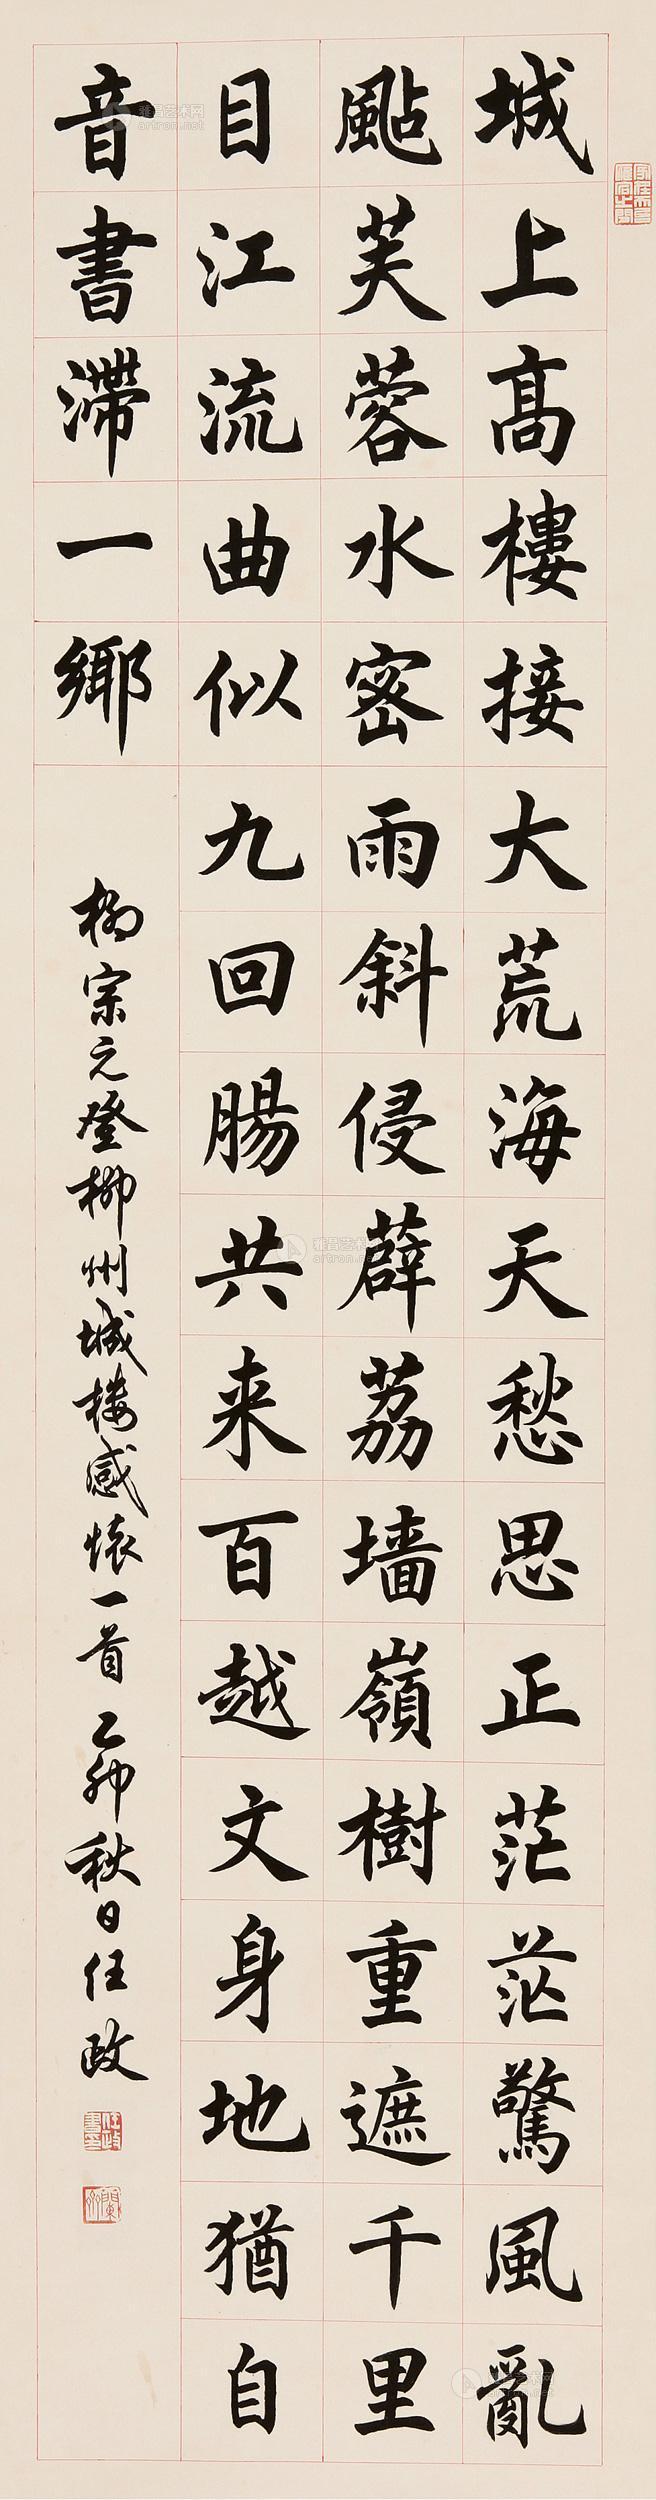 城上高樓接大荒海天愁思正茫茫驚風亂
颭芙蓉水密雨斜侵薜荔墻嶺樹重遮千里
目江流曲似九回腸共来百越文身地猶自
音書滯一鄉
柳宗元登柳州城楼感懷一首乙卯秋日任政
雅昌艺术网
artron.net